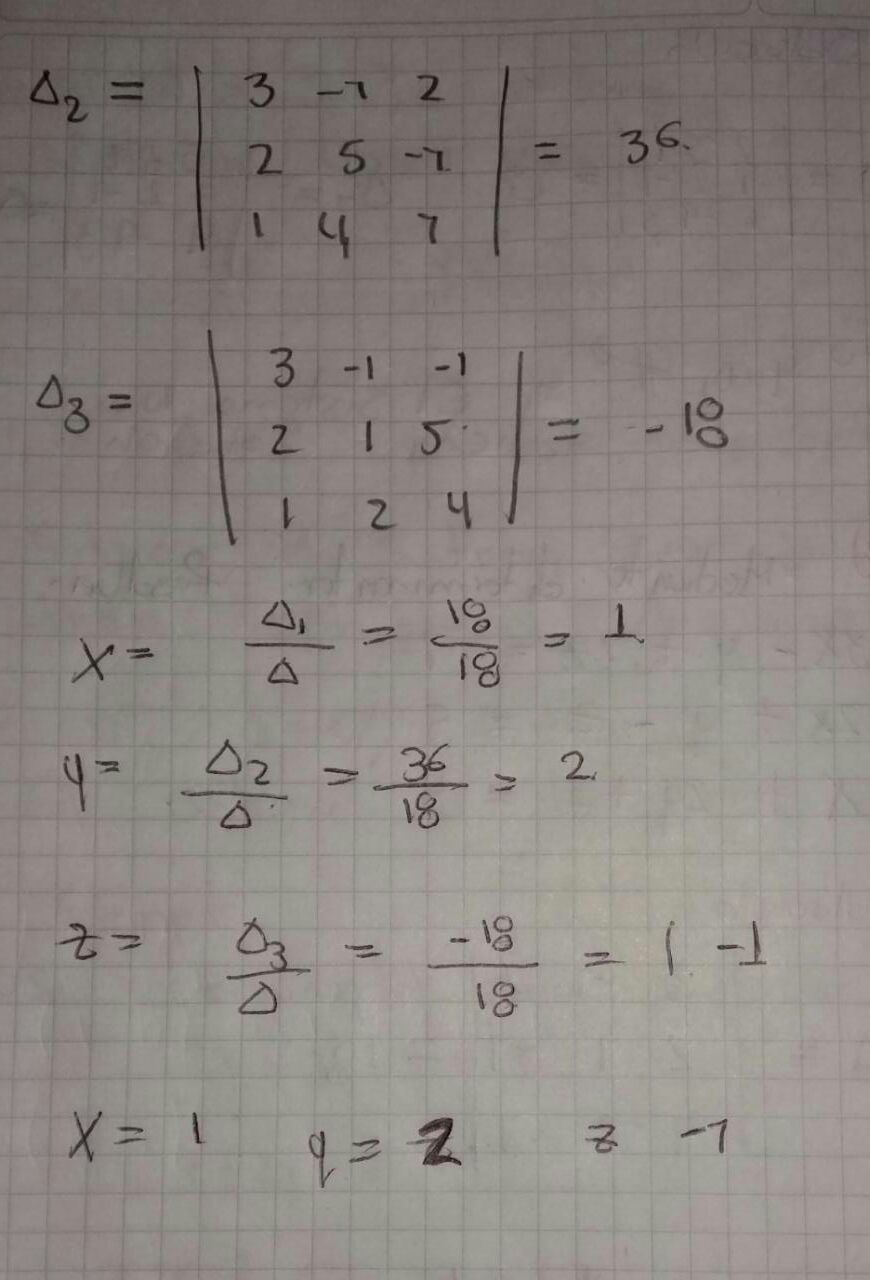 Δ₂ = | 3 -1 2 |
| 2 5 -1 | = 36.
| 1 4 1 |
Δ₃ = | 3 -1 -1 |
| 2 1 5 | = -18
| 1 2 4 |
X = Δ₁/Δ = 18/18 = 1
y = Δ₂/Δ = 36/18 = 2
z = Δ₃/Δ = -18/18 = | -1
X = 1 y = 2 z -1